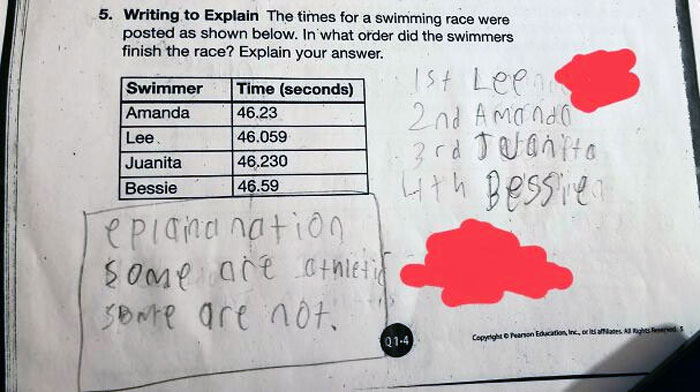 5. Writing to Explain The times for a swimming race were
posted as shown below. In what order did the swimmers
finish the race? Explain your answer.
Swimmer Time (seconds)
Amanda 46.23
Lee 46.059
Juanita 46.230
Bessie 46.59
1st Lee
2nd Amanda
3rd Juanita
4th Bessie
eplanation
some are athletic
some are not.
Q1-4
Copyright © Pearson Education, Inc., or its affiliates. All Rights Reserved. 5